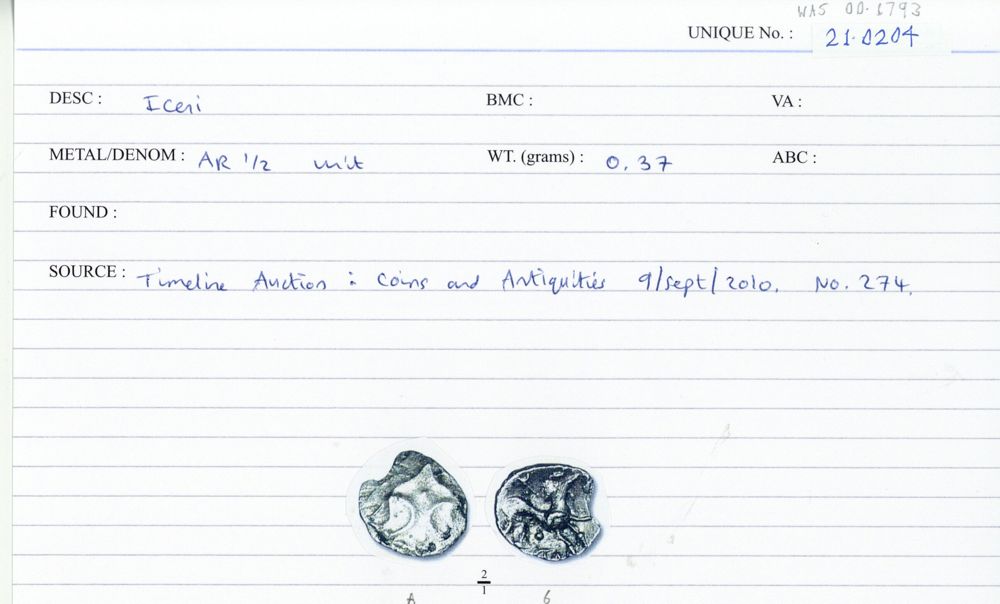 WAS 00.1793
UNIQUE No. : 21.0204
DESC : Iceni BMC : VA :
METAL/DENOM : AR 1/2 unit WT. (grams) : 0.37 ABC :
FOUND :
SOURCE : Timeline Auction : Coins and Antiquities 9/Sept/2010. No. 274.
2
1
A 6